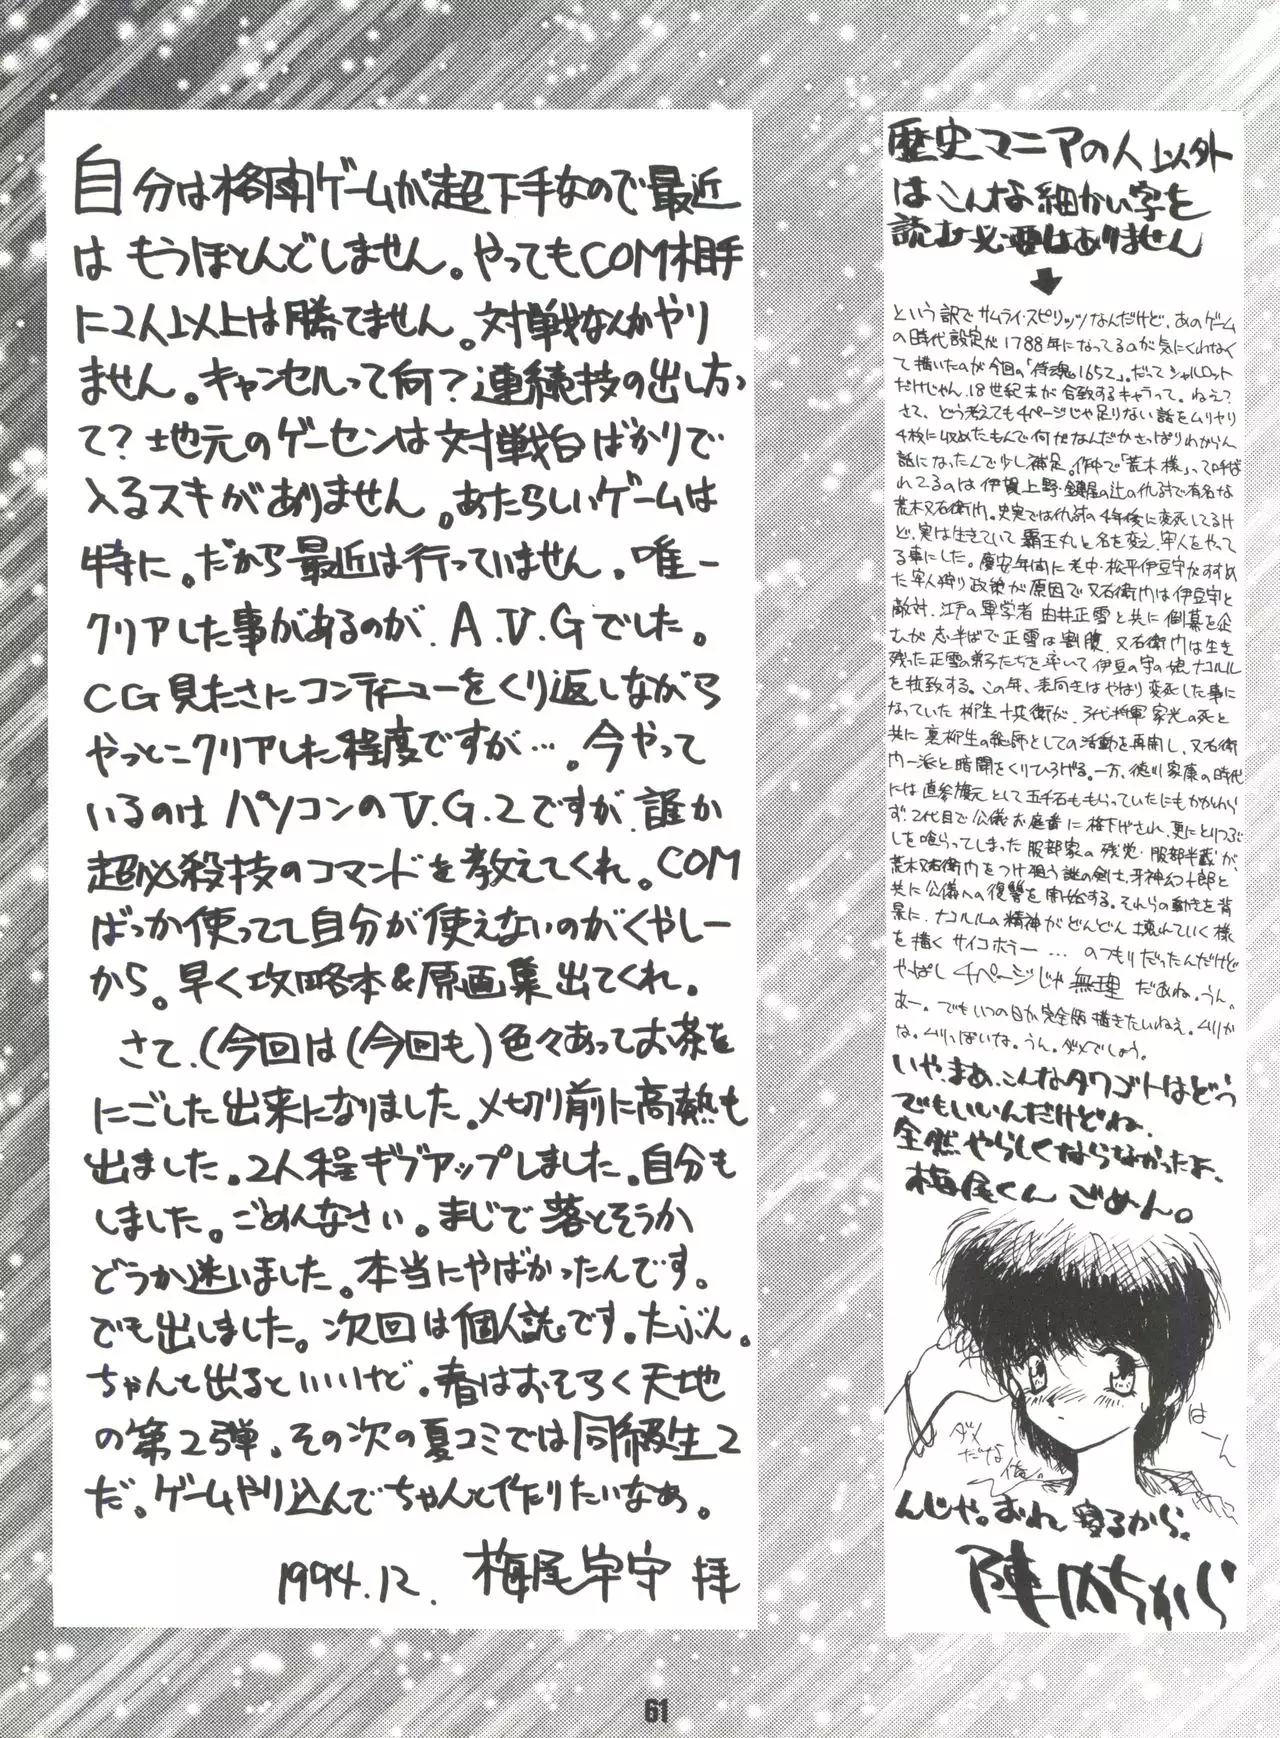 自分は格闘ゲームが超下手なので最近
は もうほとんどしません。やってもCOM相手
に2人以上は勝てません。対戦なんかやり
ません。キャンセルって何？連続技の出し方っ
て？地元のゲーセンは対戦台ばかりで
入るスキがありません。あたらしいゲームは
特に。だから最近は行っていません。唯一
クリアした事があるのが、A.V.Gでした。
CG見たさにコンティニューをくり返しながら
やっとこクリアした程度ですが…。今やって
いるのは パソコンのV.G.2ですが、誰か
超必殺技のコマンドを教えてくれ。COM
ばっか使ってて自分が使えないのがくやしー
から。早く攻略本&原画集出てくれ。
さて、(今回は(今回も)色々あってお茶を
にごした出来になりました。〆切り前に高熱も
出ました。2人程ギブアップしました。自分も
しました。ごめんなさい。まじで落とそうか
どうか迷いました。本当にやばかったんです。
でも出しました。次回は個人誌です。たぶん。
ちゃんと出るといいけど。春はおそらく天地
の第2弾、その次の夏コミでは同級生2
だ。ゲームやり込んでちゃんと作りたいなぁ。
1994.12. 梅尾宇守 拝
歴史マニアの人以外
はこんな細かい字を
読む必要はありません
という訳でサムライ・スピリッツなんだけど、あのゲーム
の時代設定が1788年になってるのが気にくわなく
て描いたのが今回の「侍魂1652」。だってシャルロット
だけじゃん、18世紀末が合致するキャラって。ねえ？
さて、どう考えても4ページじゃ足りない話をムリヤリ
4枚に収めたもんで何がなんだかさっぱりわからん
話になったんで少し補足。作中で「荒木様」って呼ば
れてるのは伊賀上野・鍵屋の辻の仇討で有名な
荒木又右衛門。史実では仇討の4年後に変死してるけ
ど、実は生きていて覇王丸と名を変え、牢人をやって
る事にした。慶安年間に老中・松平伊豆守がすすめ
た牢人狩り政策が原因で又右衛門は伊豆守と
敵対、江戸の軍学者 由井正雪と共に倒幕を企
むが志半ばで正雪は割腹、又右衛門は生き
残った正雪の弟子たちを率いて伊豆の守の娘、ナコルル
を拉致する。この年、表向きはやはり変死した事に
なっていた柳生十兵衛が、3代将軍家光の死と
共に裏柳生の総師としての活動を再開し、又右衛
門一派と暗闘をくりひろげる。一方、徳川家康の時代
には直参旗元として五千石ももらっていたにもかかわら
ず、2代目で公儀お庭番に格下げされ、更にとりつぶ
しを喰らってしまった服部家の残党・服部半蔵が、
荒木又右衛門をつけ狙う謎の剣士、牙神幻十郎と
共に公儀への復讐を開始する。それらの動きを背
景に、ナコルルの精神がどんどん壊れていく様
を描くサイコホラー…のつもりだったんだけど
やっぱし4ページじゃ無理だぁね。うん。
あー。でもいつの日か完全版描きたいねえ。ムリか
な。ムリっぽいな。うん。ダメでしょう。
いや、まぁ、こんなタワゴトはどう
でもいいんだけどね、
全然やらしくならなかったよ、
梅尾くん ごめん。
ダメ
だな
俺。
はーん
んじゃ。おれ 寝るから。
陣内ちから
61